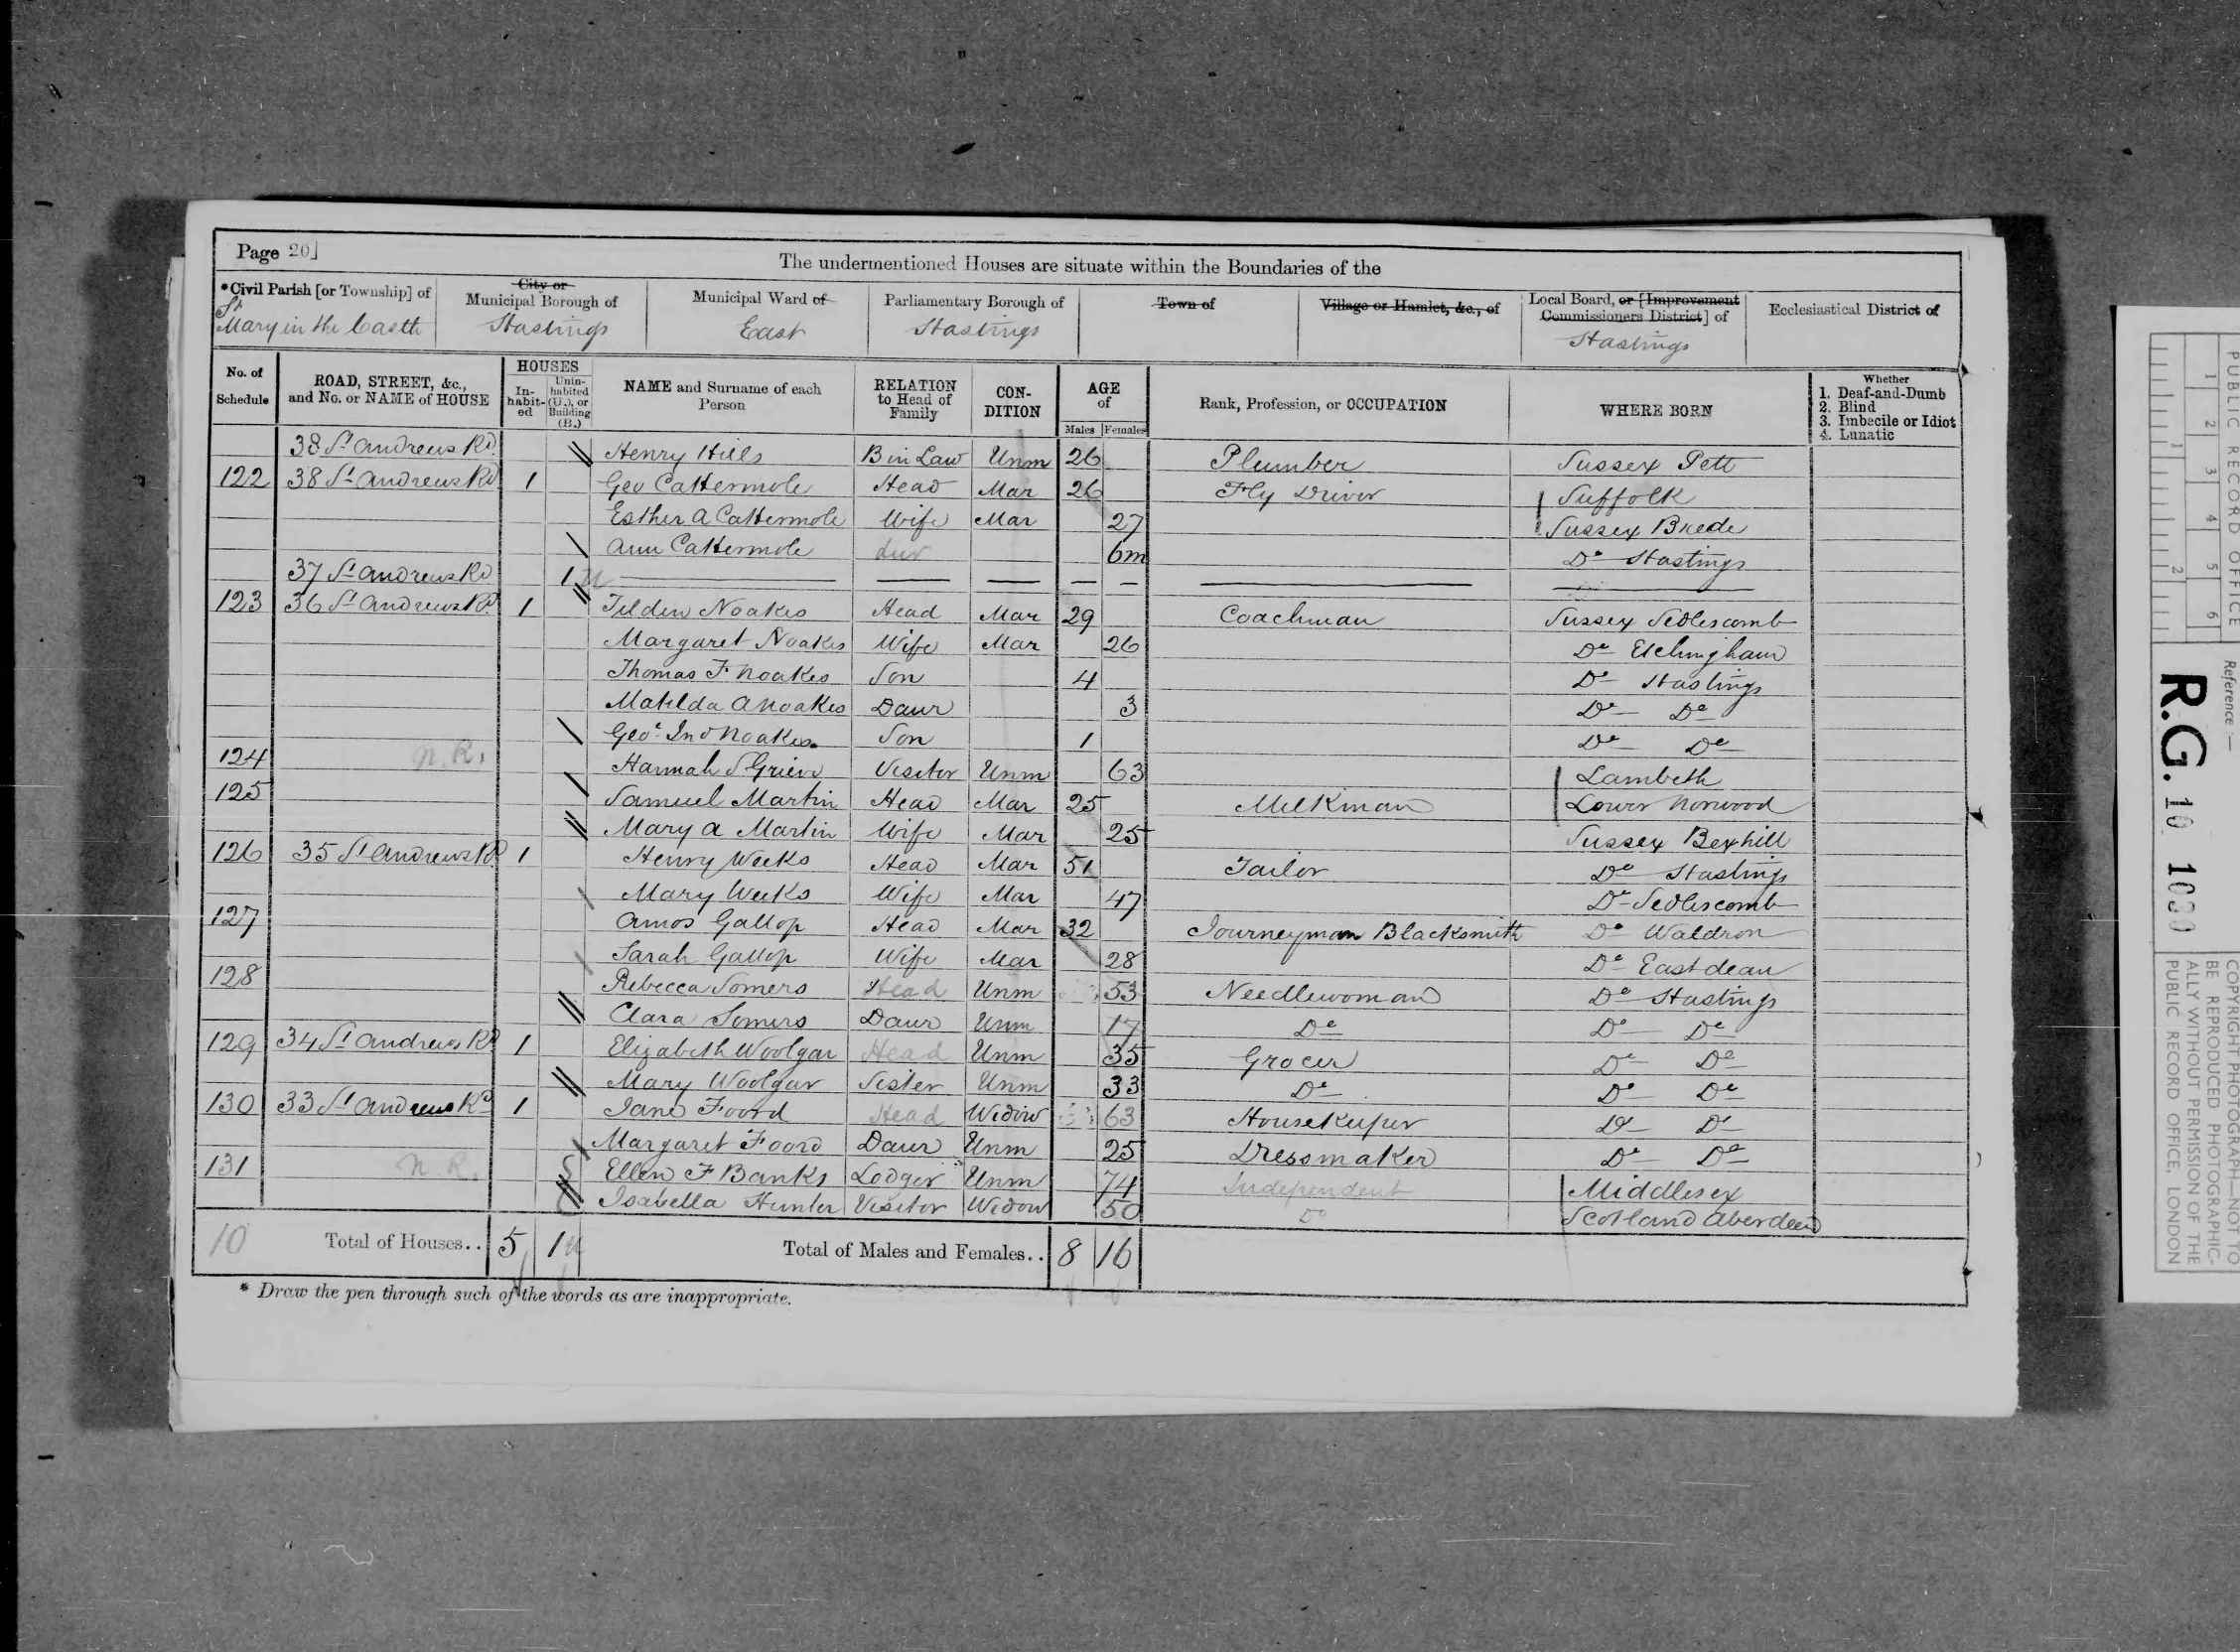 Page 20]
The undermentioned Houses are situate within the Boundaries of the
*Civil Parish [or Township] of
St Mary in the Castle
City or Municipal Borough of
Hastings
Municipal Ward of
East
Parliamentary Borough of
Hastings
Town of
Village or Hamlet, &c., of
Local Board, or [Improvement Commissioners District] of
Hastings
Ecclesiastical District of
No. of Schedule
ROAD, STREET, &c., and No. or NAME of HOUSE
HOUSES
Inhabited
Uninhabited (U.), or Building (B.)
NAME and Surname of each Person
RELATION to Head of Family
CONDITION
AGE of
Males
Females
Rank, Profession, or OCCUPATION
WHERE BORN
Whether
1. Deaf-and-Dumb
2. Blind
3. Imbecile or Idiot
4. Lunatic
38 St Andrews Rd Henry Hills B in Law Unm 26 Plumber Sussex Pett
122 38 St Andrews Rd 1 Geo Cattermole Head Mar 26 Fly Driver Suffolk
Esther A Cattermole Wife Mar 27 Sussex Brede
Ann Cattermole Dur 6m Do Hastings
37 St Andrews Rd 1 u
123 36 St Andrews Rd 1 Tilden Noakes Head Mar 29 Coachman Sussex Sedlescomb
Margaret Noakes Wife Mar 26 Do Etchingham
Thomas F Noakes Son 4 Do Hastings
Matilda A Noakes Daur 3 Do Do
Geoe Jno Noakes Son 1 Do Do
124 N.R. Hannah S Grieve Visitor Unm 63 Lambeth
125 Samuel Martin Head Mar 25 Milkman Lower Norwood
Mary A Martin Wife Mar 25 Sussex Bexhill
126 35 St Andrews Rd 1 Henry Weeks Head Mar 51 Tailor Do Hastings
Mary Weeks Wife Mar 47 Do Sedlescomb
127 Amos Gallop Head Mar 32 Journeyman Blacksmith Do Waldron
Sarah Gallop Wife Mar 28 Do Eastdean
128 Rebecca Somers Head Unm 53 Needlewoman Do Hastings
Clara Somers Daur Unm 17 Do Do Do
129 34 St Andrews Rd 1 Elizabeth Woolgar Head Unm 35 Grocer Do Do
Mary Woolgar Sister Unm 33 Do Do Do
130 33 St Andrews Rd 1 Jane Foord Head Widow 63 Housekeeper Do Do
Margaret Foord Daur Unm 25 Dressmaker Do Do
131 N.R. Ellen F Banks Lodger Unm 74 Independent Middlesex
Isabella Hunter Visitor Widow 50 Do Scotland Aberdeen
10 Total of Houses.. 5 1u Total of Males and Females.. 8 16
* Draw the pen through such of the words as are inappropriate.
PUBLIC RECORD OFFICE
1 2 3 4 5 6
1 2
Reference:—
R.G. 10 1030
COPYRIGHT PHOTOGRAPH—NOT TO BE REPRODUCED PHOTOGRAPHICALLY WITHOUT PERMISSION OF THE PUBLIC RECORD OFFICE, LONDON